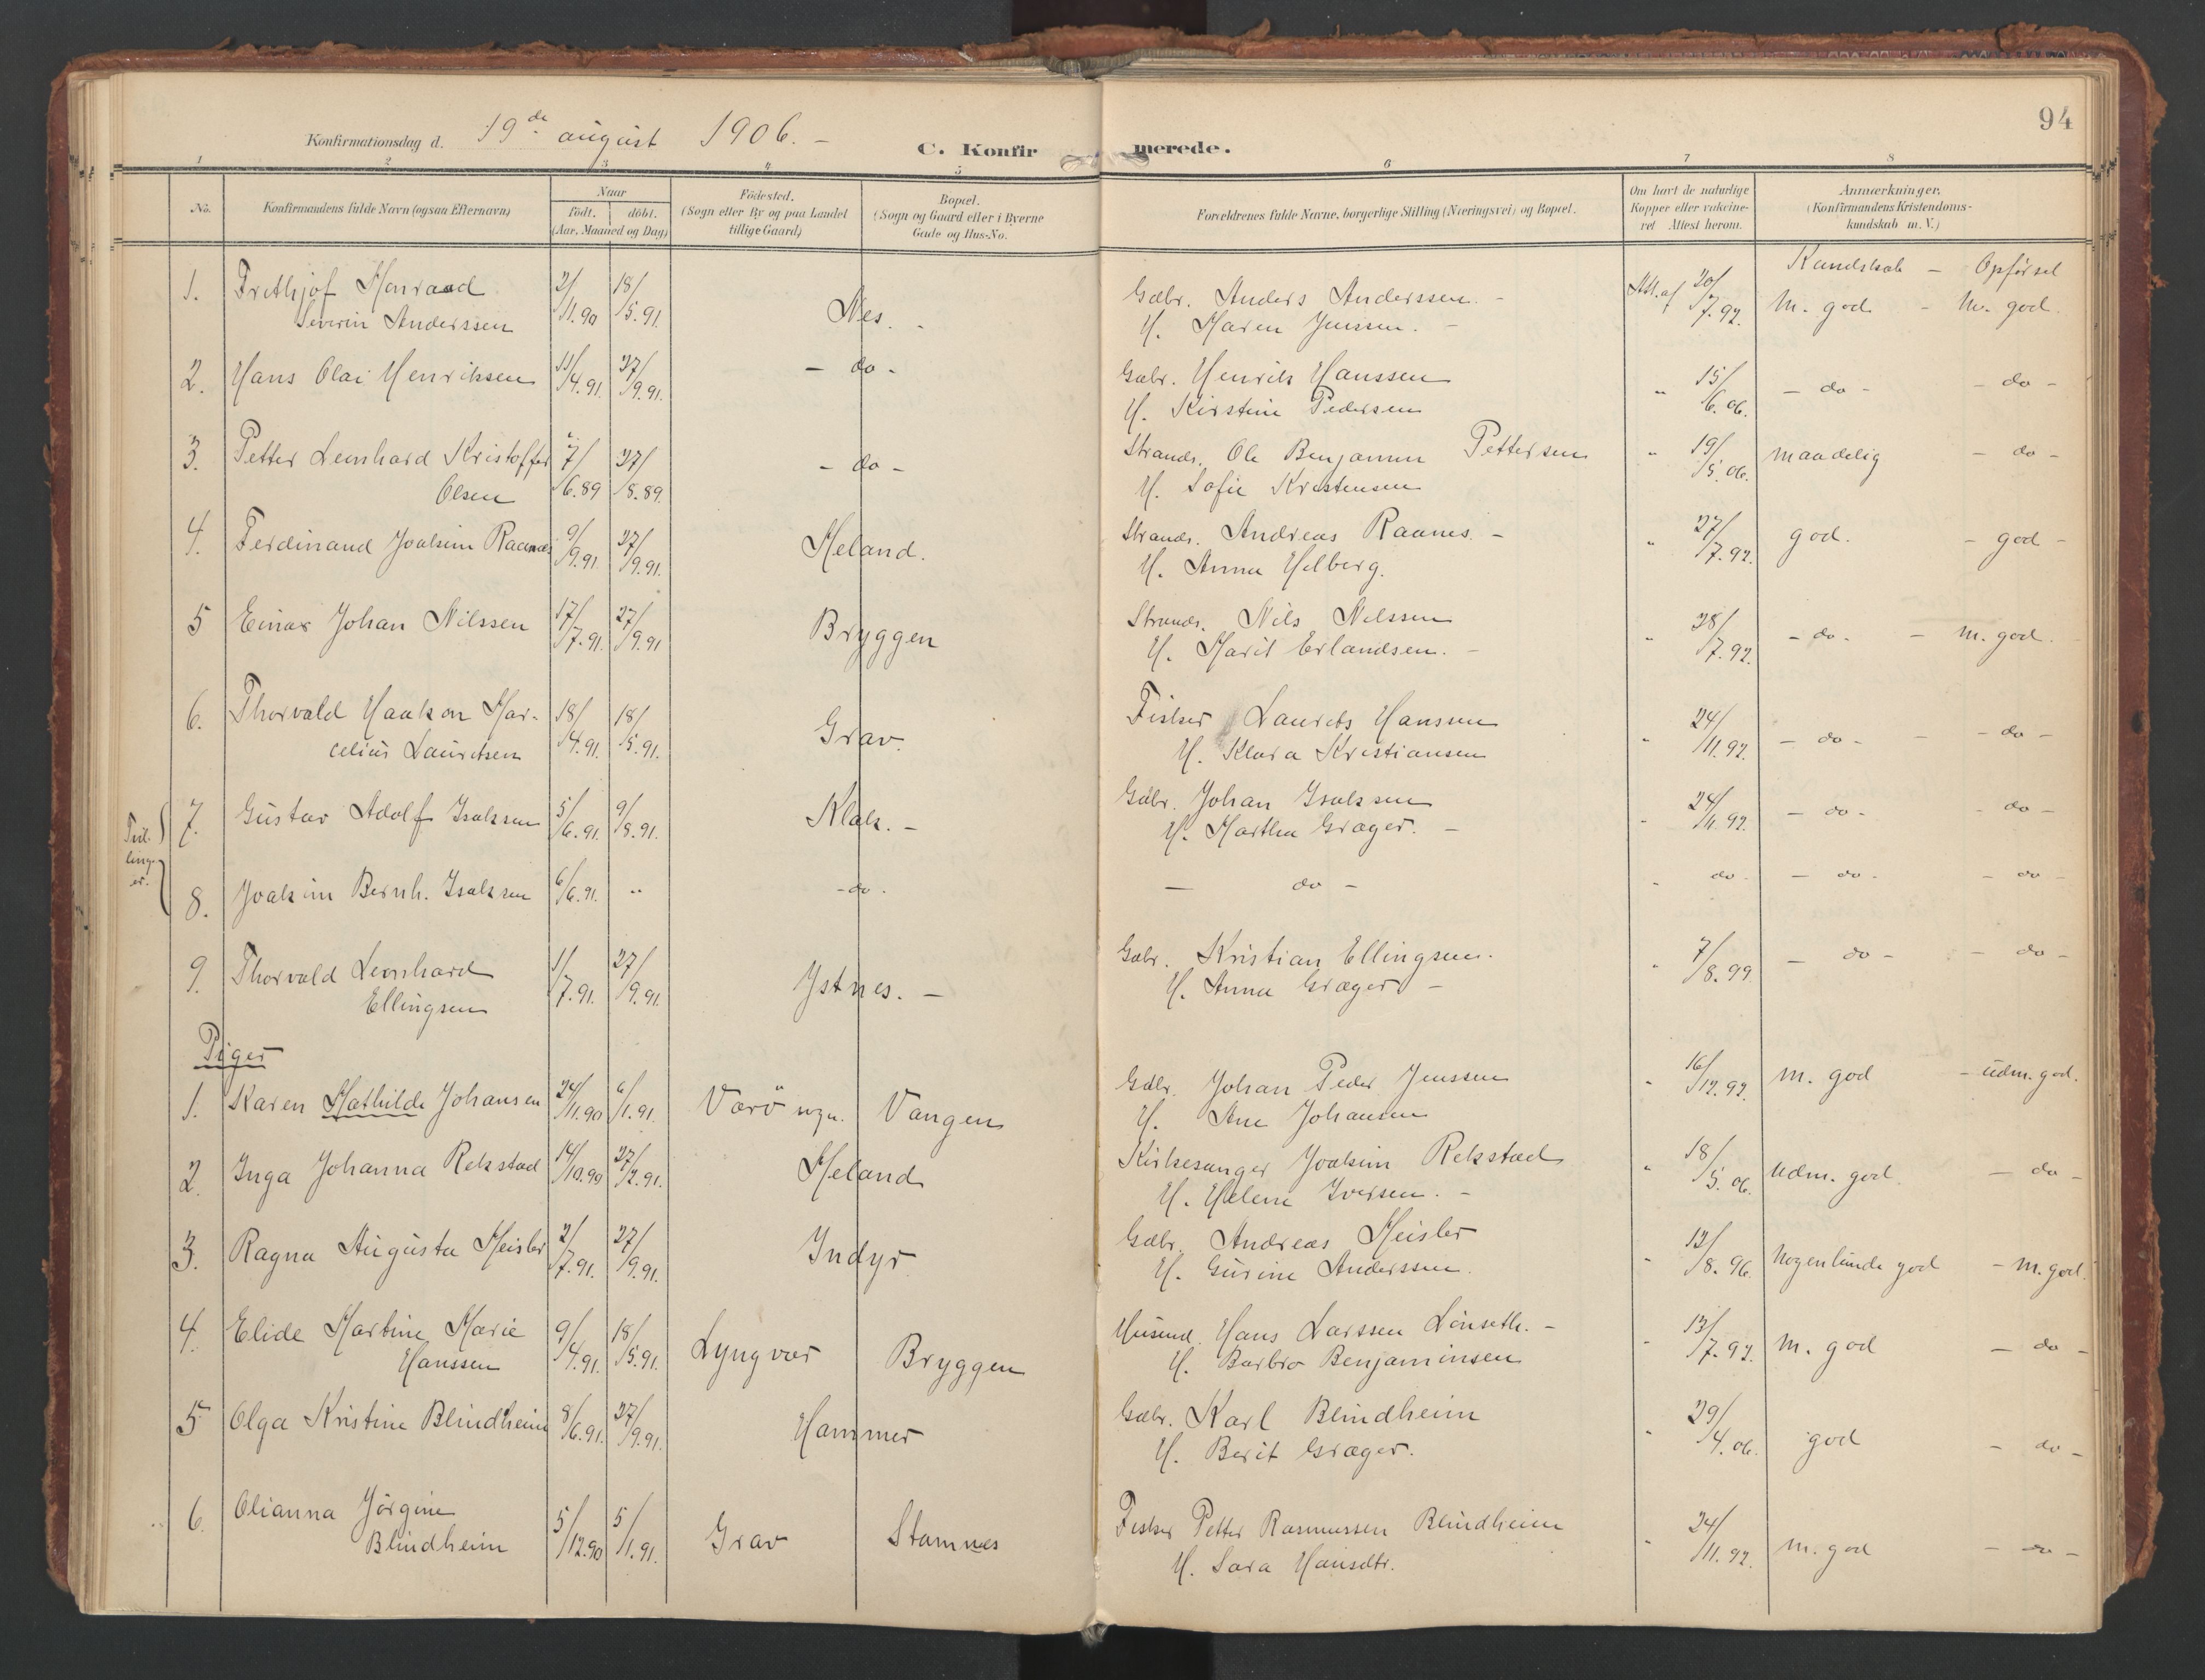 94
Konfirmationsdag d. 19de august 1906. –
C. Konfirmerede.
1 2 3 4 5 6 7 8
No.
Konfirmandens fulde Navn (ogsaa Efternavn)
Naar
födt. döbt.
(Aar, Maaned og Dag)
Födested.
(Sogn eller By og paa Landet
tillige Gaard)
Bopæl.
(Sogn og Gaard eller i Byerne
Gade og Hus-No.
Forældrenes fulde Navne, borgerlige Stilling (Næringsvei) og Bopæl.
Om havt de naturlige
Kopper eller vakcine-
ret Attest herom.
Anmærkninger.
(Konfirmandens Kristendoms-
kundskab m. V.)
Kundskab – Opförsel
1. Frithjof Konraad 2/11.90 18/5.91. Nes. Gdbr. Anders Anderssen. – Att. af 20/7.92. M. god – M. god.
Severin Anderssen H. Maren Jenssen. –
2. Hans Olai Henriksen 11/4.91. 27/9.91. – do – Gdbr. Henrik Hanssen " 15/6.06. – do – – do –
H. Kirstine Pedersen
3. Petter Leonhard Kristoffer 7/6.89 27/8.89. – do – Strands. Ole Benjamin Pettersen " 19/5.06. maadelig – do –
Olsen H. Sofie Kristensen
4. Ferdinand Joakim Raanes 9/9.91. 27/9.91. Meland. Strands. Andreas Raanes. – " 27/7.92. god. – god –
H. Anna Helberg.
5 Einar Johan Nilssen 17/7.91. 27/9.91 Bryggen Strands. Nils Nilssen " 28/7.92. – do – – M. god.
H. Marit Erlandsen. –
6. Thorvald Haakon Mar- 18/4.91. 18/5.91. Grav. Fisker Laurits Hanssen " 24/11.92. – do – – do –
celius Lauritsen H. Klara Kristiansen
Tvil-
linger
er.
7. Gustav Adolf Isaksen 5/6.91. 9/8.91. Klak. – Gdbr. Johan Isaksen " 24/11.92. – do – – do –
H. Martha Græger. –
8. Joakim Bernh. Isaksen 6/6.91. " – do – – do – " do – – do – – do –
9. Thorvald Leonhard 1/7.91. 27/9.91. Ystnes. – Gdbr. Kristian Ellingsen. " 7/8.99. – do – – do –
Ellingsen H. Anna Græger –
Piger
1. Karen Mathilde Johansen 24/11.90 6/1.91. Værö sogn. Vangen Gdbr. Johan Peder Jenssen " 16/12.92. M. god – udm. god.
H. Ane Johansen
2. Inga Johanna Rekstad 14/10.90 27/2.91. Meland Kirkesanger Joakim Rekstad " 18/5.06. Udm. god. – do –
H. Helene Iversen. –
3. Ragna Augusta Meisler 2/7.91. 27/9.91. Indyr Gdbr. Andreas Meisler " 12/8.96. Nogenlunde god – M. god.
H. Gurine Anderssen.
4. Elide Martine Marie 9/4.91. 18/5.91. Lyngvær Bryggen Husmd. Hans Larssen Lönseth. – " 13/7.92. M. god – do –
Hanssen H. Barbro Benjaminsen
5 Olga Kristine Blindheim 8/6.91. 27/9.91. Hammer Gdbr. Karl Blindheim " 29/4.06. god – do –
H. Berit Græger.
6. Olianna Jörgine 5/12.90 5/1.91. Grav Stamnes Fisker Petter Rasmussen Blindheim " 24/11.92. M. god – do –
Blindheim H. Sara Hansdtr.